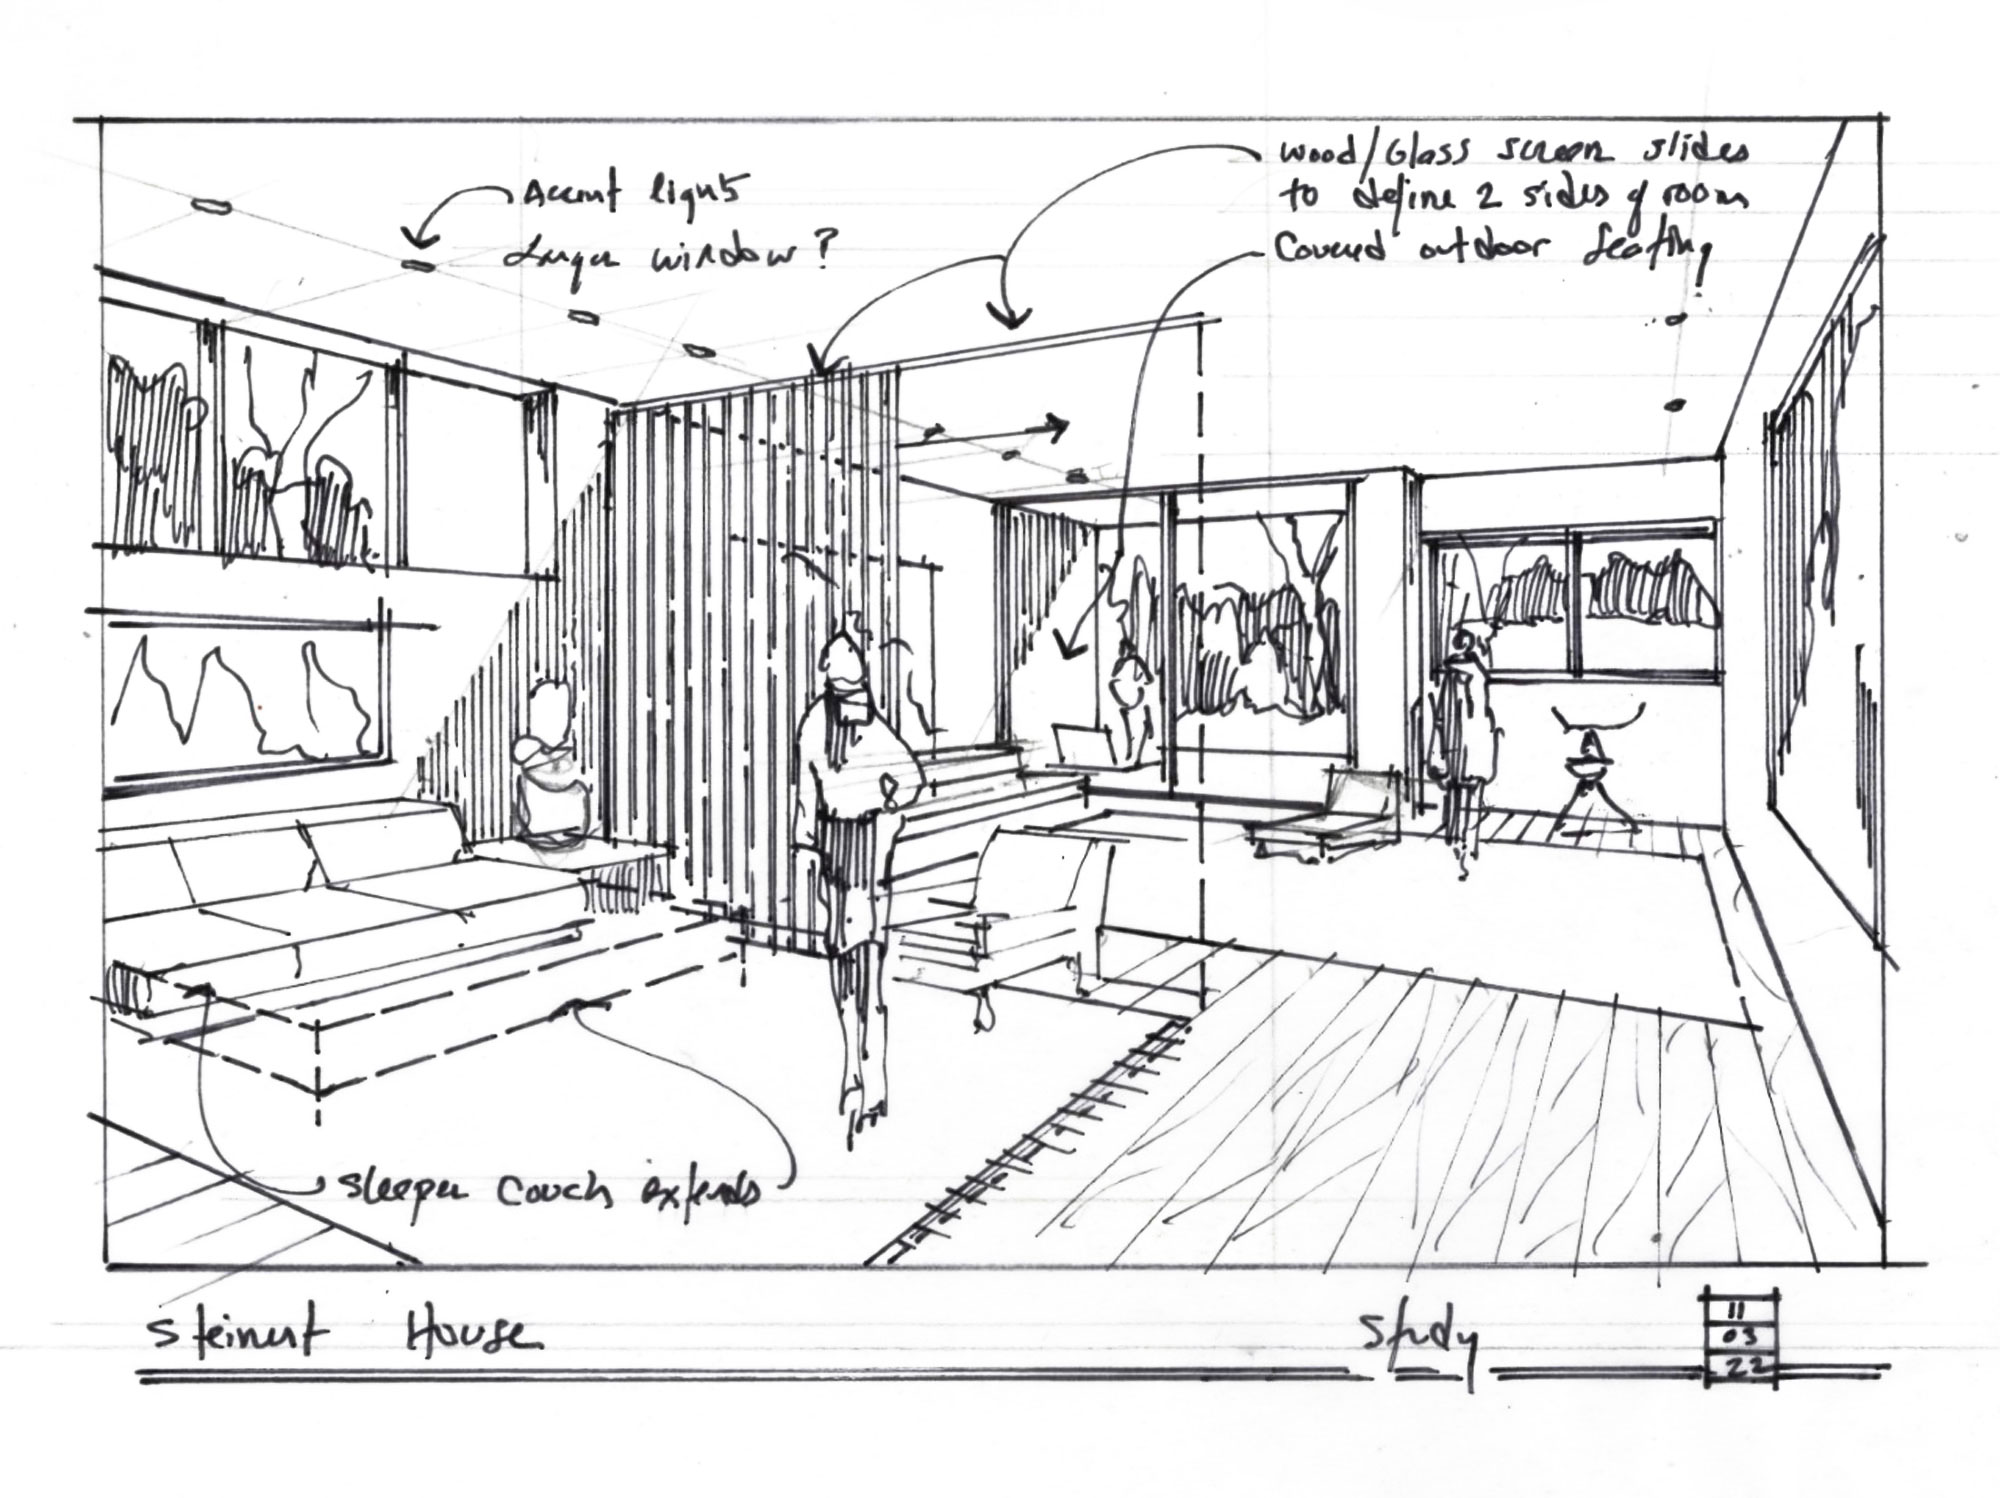 Accent lights
Larger window?
wood/Glass screen slides
to define 2 sides of room
Covered outdoor seating
Sleeper couch extends
Steinert House
Study
11
03
22